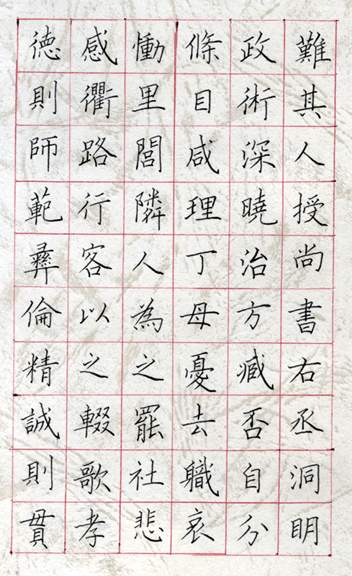 難其人授尚書右丞洞明
政術深曉治方臧否自分
條目咸理丁母憂去職哀
慟里閭隣人為之罷社悲
感衢路行客以之輟歌孝
德則師範彝倫精誠則貫